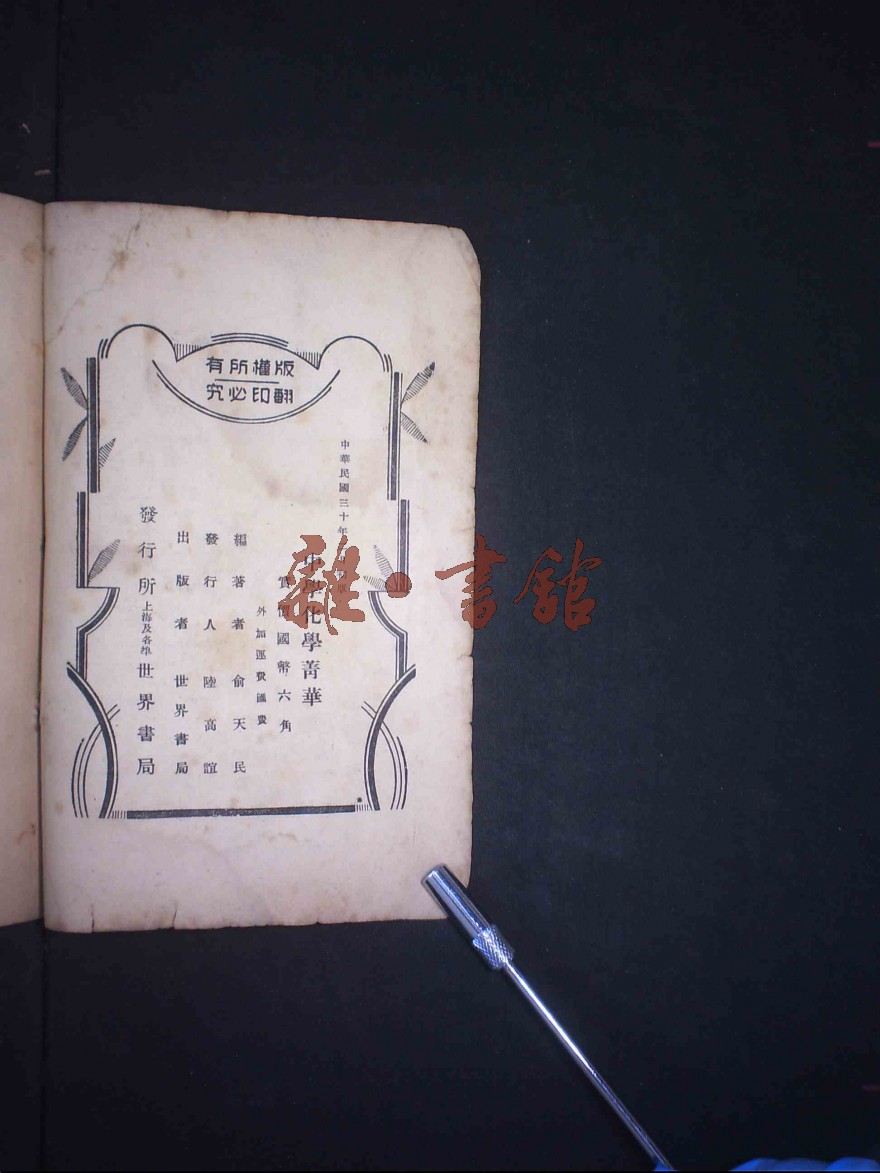 版權所有
翻印必究
中華民國三十年
中學化學菁華
實價國幣六角
外加運費匯費
編著者 俞天民
發行人 陸高誼
出版者 世界書局
發行所 上海及各埠 世界書局
雜·書館